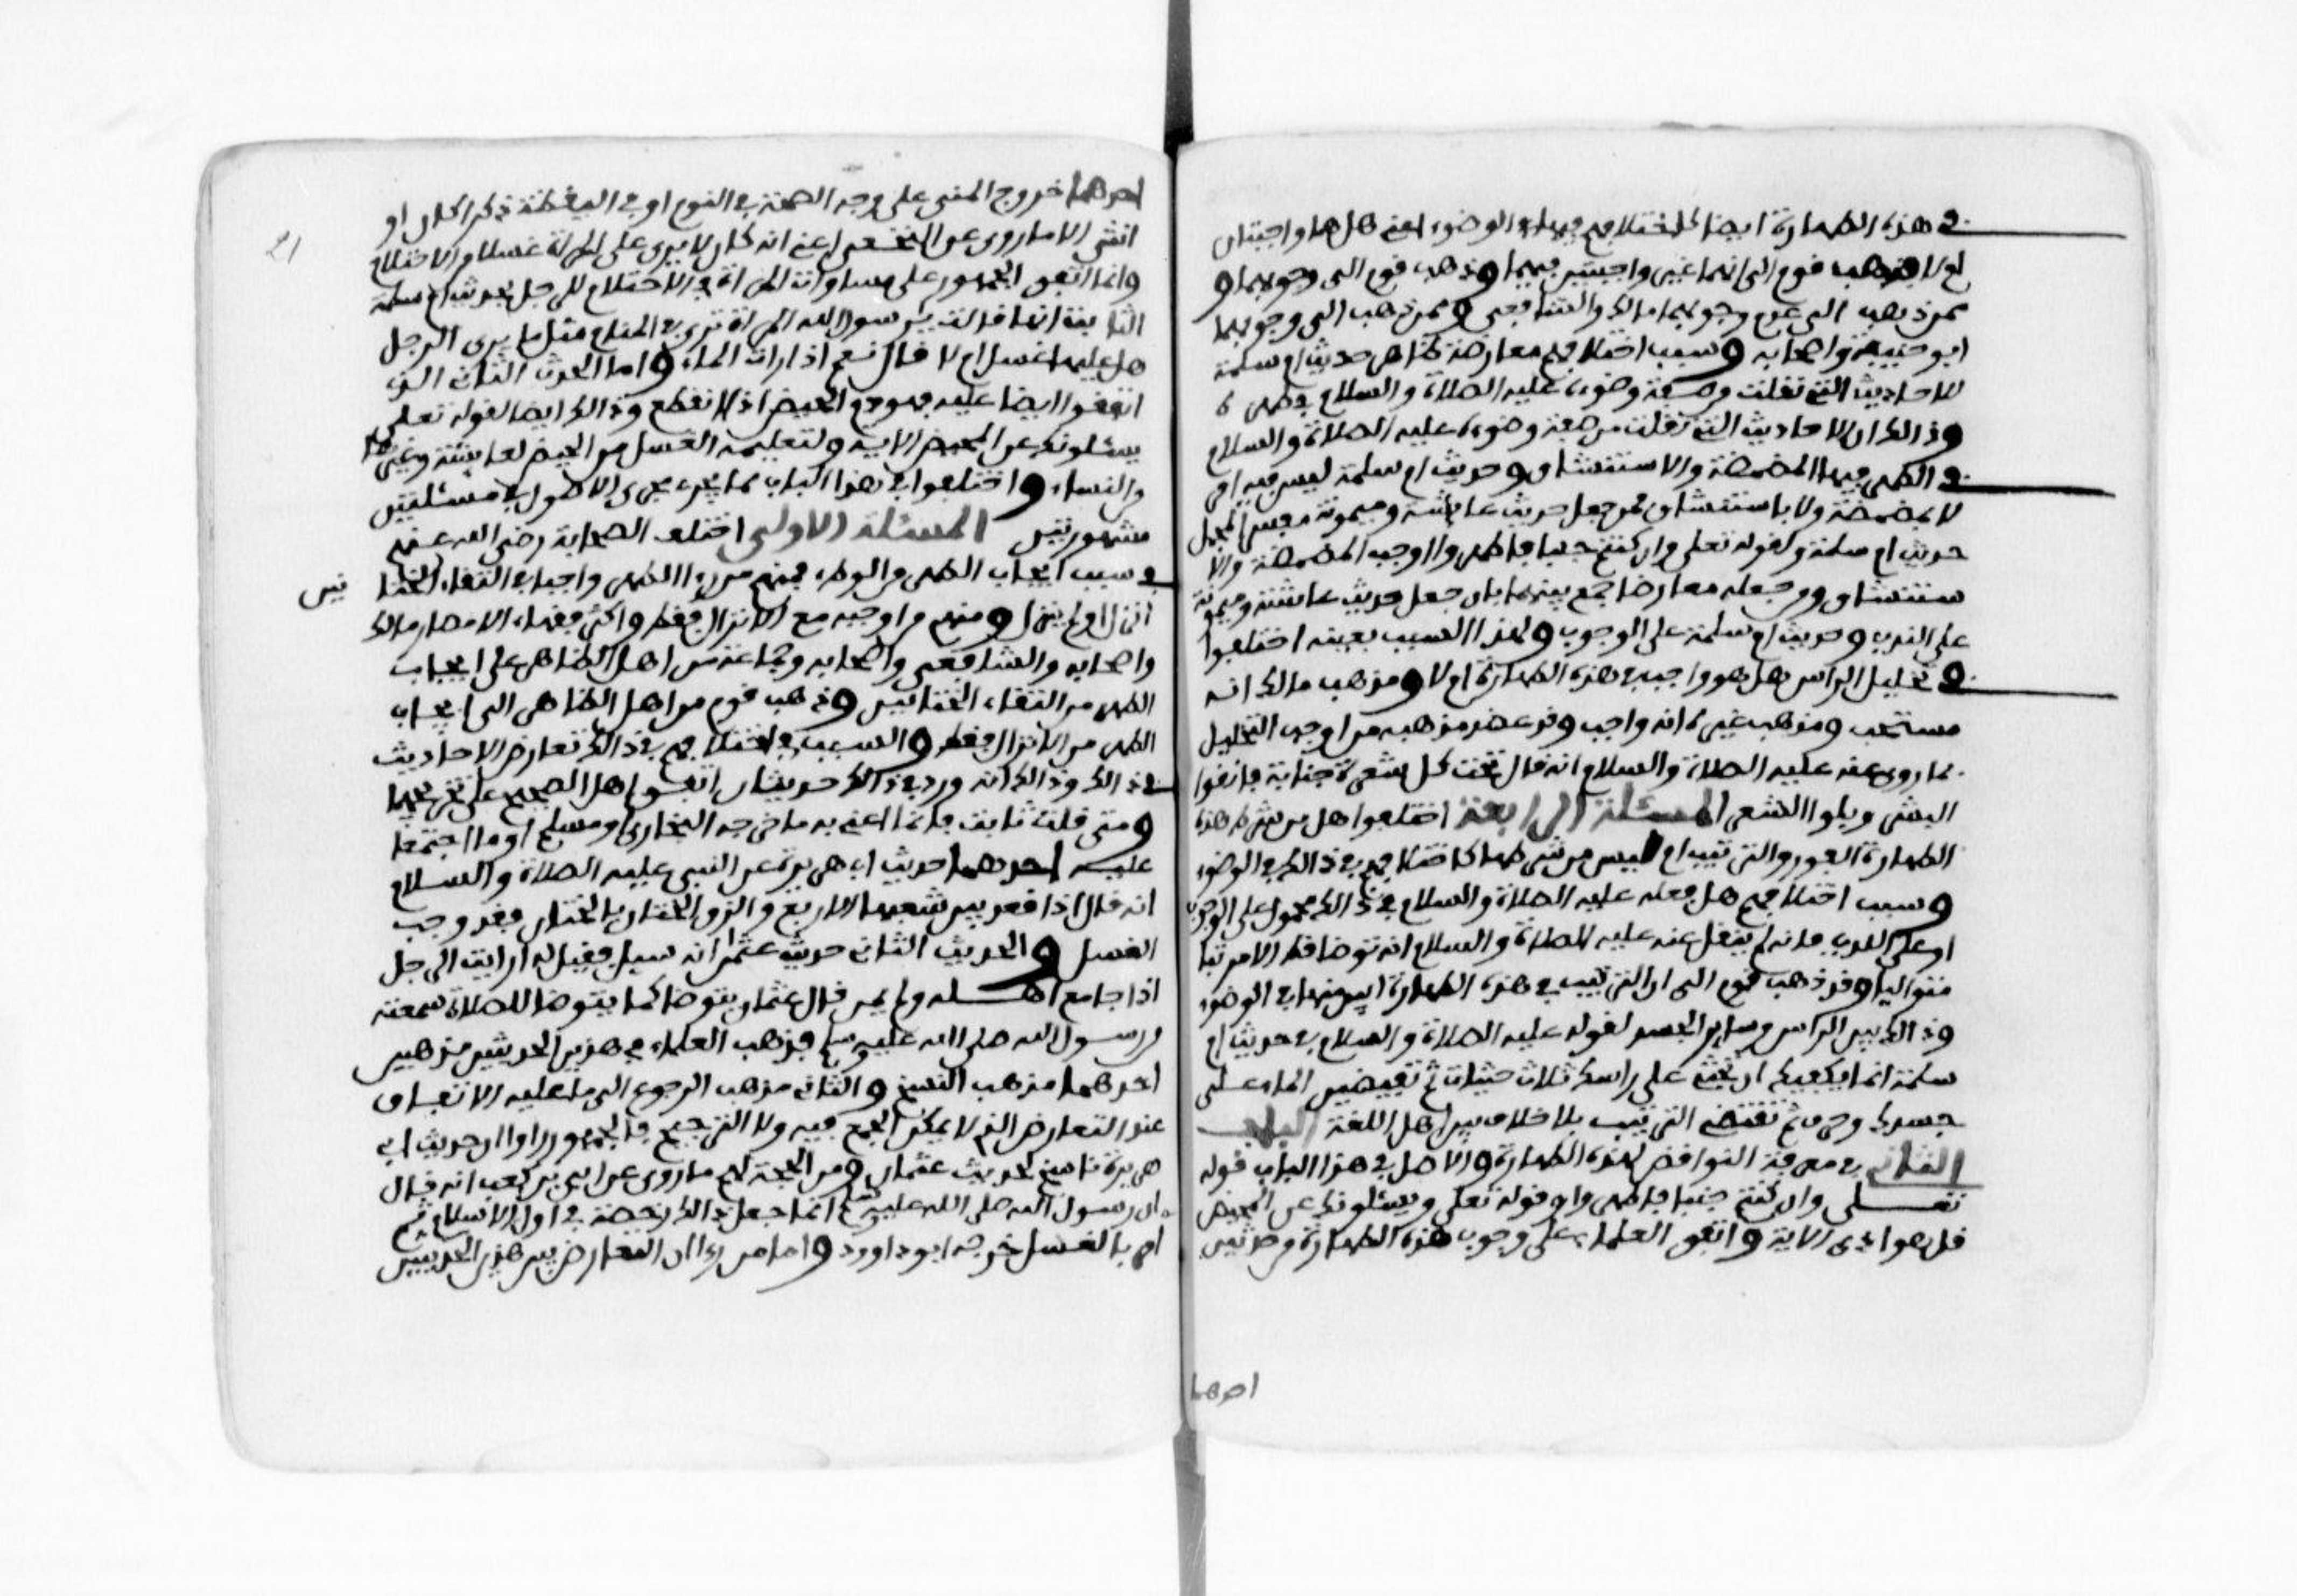 في هذه الطهارة ايضا كاختلافهم فيهما في الوضوء اعني هل هما واجبتان
ام لا فذهب قوم الى انهما غير واجبتين فيهما وذهب قوم الى وجوبهما و
ممن ذهب الى عدم وجوبهما مالك والشافعي وممن ذهب الى وجوبهما
ابو حنيفة واصحابه وسبب اختلافهم معارضة ظاهر حديث ام سلمة
للاحاديث التي نقلت وصفة وضوءه عليه الصلاة والسلام في طهره
وذالك ان الاحاديث التي نقلت من صفة وضوءه عليه الصلاة والسلام
في الطهر فيها المضمضة والاستنشاق وحديث ام سلمة ليس فيه امر
لا بمضمضة ولا باستنشاق فمن جعل حديث عايشة وميمونة مفسرا لمجمل
حديث ام سلمة ولقوله تعلى وان كنتم جنبا فاطهروا اوجب المضمضة والا
ستنشاق ومن جعله معارضا جمع بينهما بان جعل حديث عائشة وميمونة
على الندب وحديث ام سلمة على الوجوب ولهذا السبب بعينه اختلفوا
في تخليل الراس هل هو واجب في هذه الطهارة ام لا ومذهب مالك انه
مستحب ومذهب غيره انه واجب وقد عضد مذهبه من اوجب التخليل
بما روي عنه عليه الصلاة والسلام انه قال تحت كل شعرة جنابة فانقوا
البشر وبلوا الشعر المسئلة الرابعة اختلفوا هل من شرط هذه
الطهارة الفور والترتيب ام ليس من شرطها كاختلافهم في ذالك في الوضوء
وسبب اختلافهم هل فعله عليه الصلاة والسلام في ذالك محمول على الوجوب
او على الندب فانه لم ينقل عنه عليه الصلاة والسلام انه توضا قط الا مرتبا
متواليا وقد ذهب قوم الى ان الترتيب في هذه الطهارة ابين منها في الوضوء
وذالك بين الراس وساير الجسد لقوله عليه الصلاة والسلام في حديث ام
سلمة انما يكفيك ان تحثي على راسك ثلاث حثيات ثم تفيضين الماء على
جسدك وحرف ثم تقتضي الترتيب بلا خلاف بين اهل اللغة الباب
الثاني في معرفة النواقض لهذه الطهارة والاصل في هذا الباب قوله
تعلى وان كنتم جنبا فاطهروا وقوله تعلى ويسئلونك عن المحيض
قل هو اذى الاية واتفق العلماء على وجوب هذه الطهارة من حدثين
احدهما
21
احدهما خروج المني على وجه الصحة في النوم او في اليقظة ذكرا كان او
انثى الا ما روي عن النخعي اعني انه كان لا يرى على المراة غسلا من الاحتلام
وانما اتفق الجمهور على مساواة المراة في الاحتلام للرجل لحديث ام سلمة
الثابتة انها قالت يرسول الله المراة ترى في المنام مثل ما يرى الرجل
هل عليها غسل ام لا قال نعم اذا رات الماء واما الحدث الثاني الذي
اتفقوا ايضا عليه فهو دم الحيض اذا انقطع وذالك ايضا لقوله تعلى
يسئلونك عن المحيض الاية ولتعليمه الغسل من الحيض لعايشة وغيرها
من النساء واختلفوا في هذا الباب مما يجري مجرى الاصول في مسئلتين
مشهورتين المسئلة الاولى اختلف الصحابة رضي الله عنهم
في سبب ايجاب الطهر من الوطء فمنهم من رءا الطهر واجبا في التقاء الختا نين
انزل او لم ينزل ومنهم من اوجبه مع الانزال فقط واكثر فقهاء الامصار مالك
واصحابه والشافعي واصحابه وجماعة من اهل الظاهر على ايجاب
الطهر من التقاء الختانين وذهب قوم من اهل الظاهر الى ايجاب
الطهر من الانزال فقط والسبب في اختلافهم في ذالك تعارض الاحاديث
في ذالك وذالك انه ورد في ذالك حديثان اتفق اهل الصحيح على تخريجهما
ومتى قلت ثابت فانما اعني به ما خرجه البخاري ومسلم او ما اجتمعا
عليه احدهما حديث ابي هريرة عن النبي عليه الصلاة والسلام
انه قال اذا قعد بين شعبها الاربع والزق الختان بالختان فقد وجب
الغسل والحديث الثاني حديث عثمان انه سيل فقيل له ارايت الرجل
اذا جامع اهله ولم يمن قال عثمان يتوضا كما يتوضا للصلاة سمعته
من رسول الله صلى الله عليه وسلم فذهب العلماء في هذين الحديثين مذهبين
احدهما مذهب النسخ والثاني مذهب الرجوع الى ما عليه الاتفاق
عند التعارض الذي لا يمكن الجمع فيه ولا الترجيح فالجمهور راوا ان حديث ابي
هريرة ناسخ لحديث عثمان ومن الحجة لهم ما روي عن ابي بن كعب انه قال
ان رسول الله صلى الله عليه وسلم انما جعل ذالك رخصة في اول الاسلام ثم
امر بالغسل خرجه ابو داوود واما من رءا ان التعارض بين هذين الحديثين